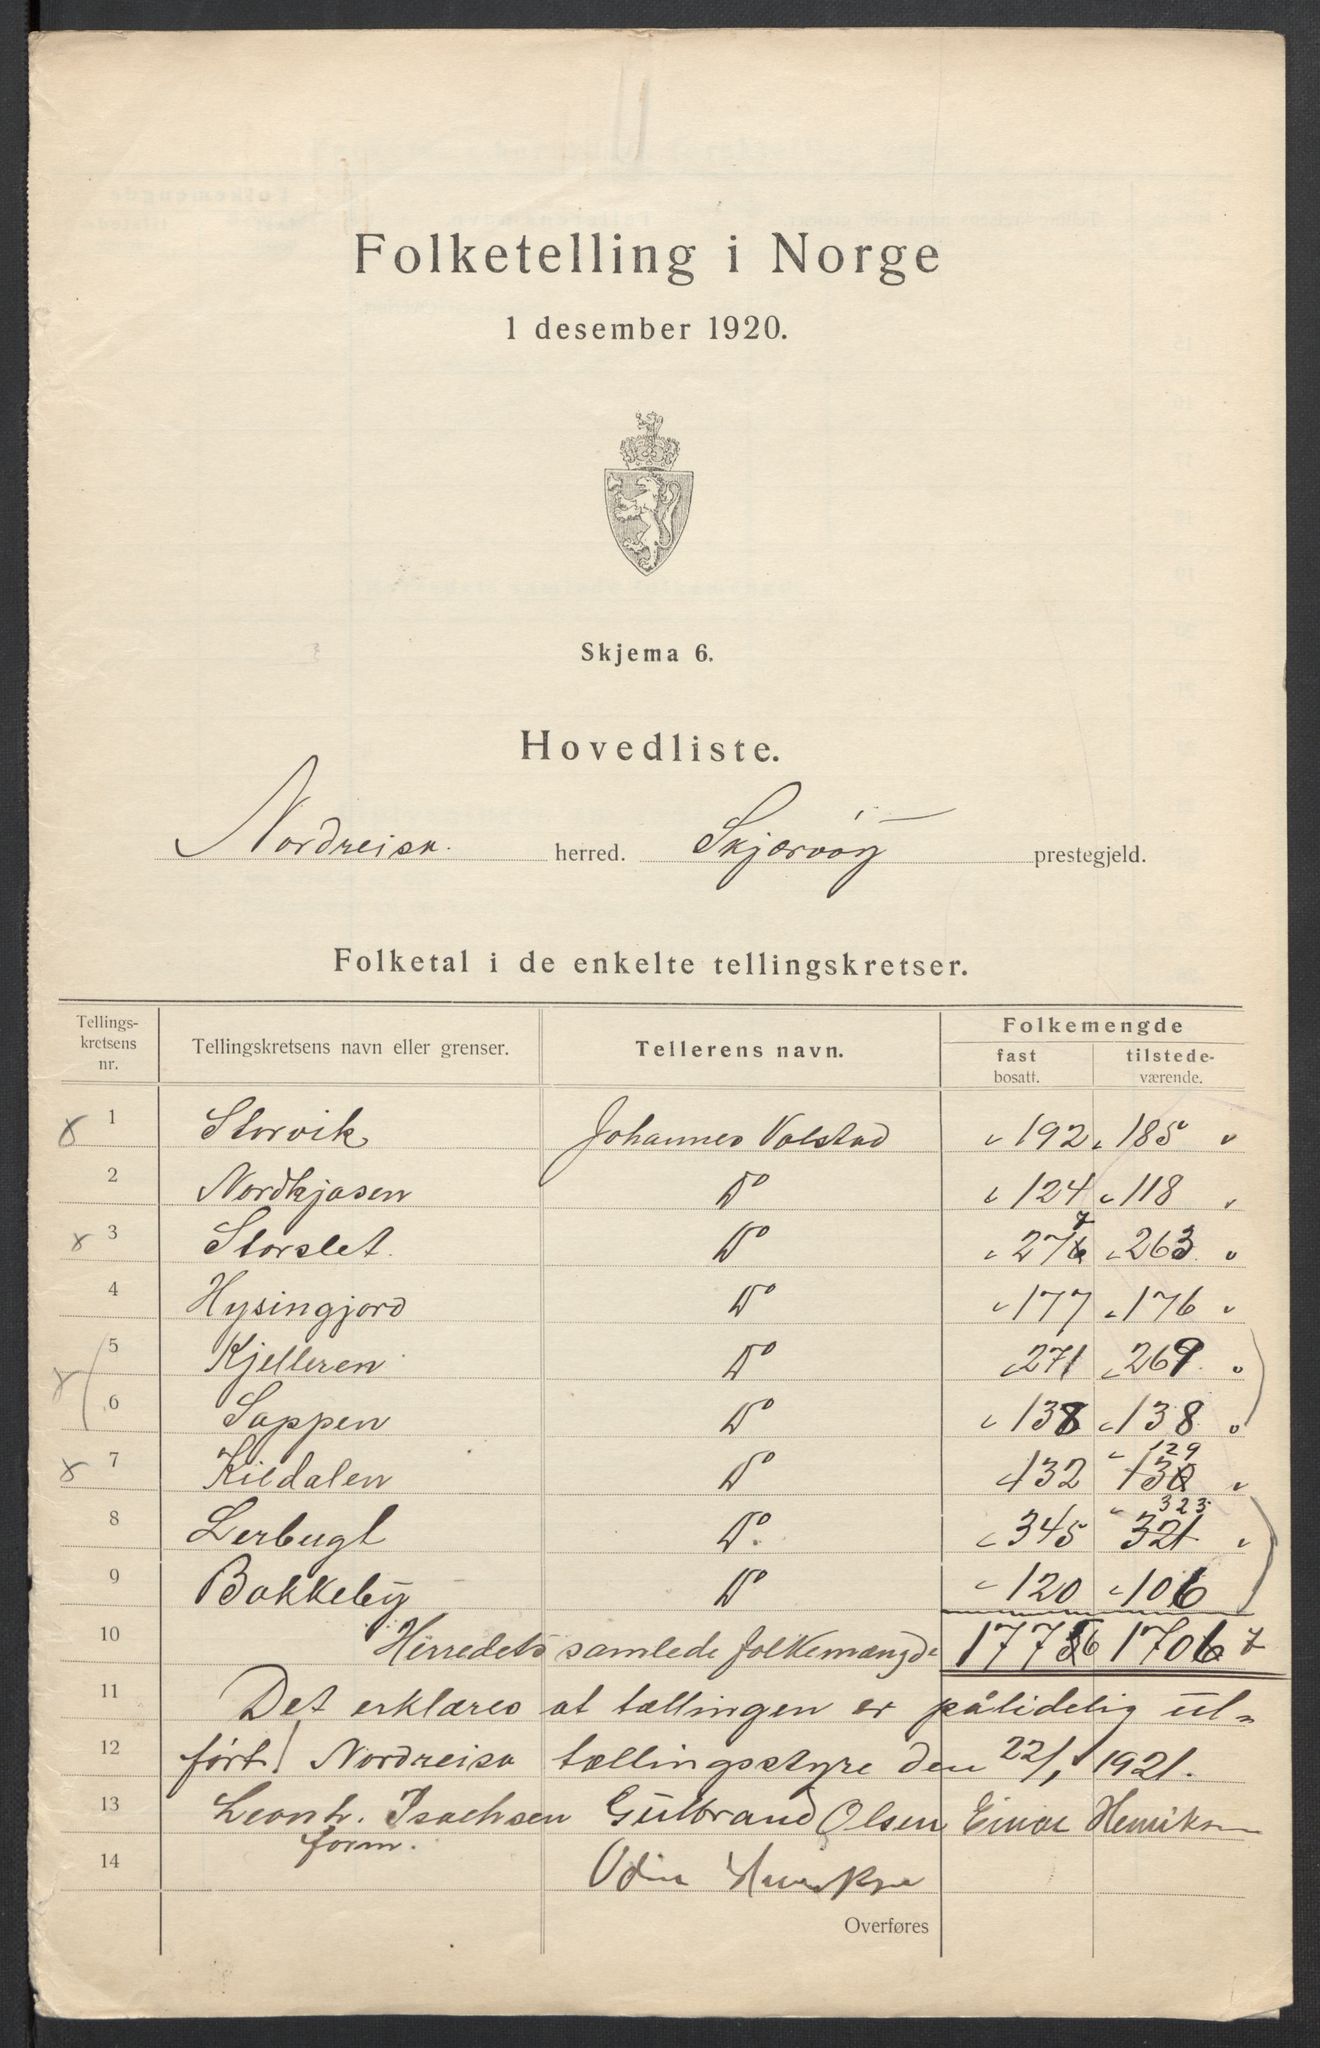 Folketelling i Norge
1 desember 1920.
Skjema 6.
Hovedliste.
Nordreisa. herred. Skjærvøy prestegjeld.
Folketal i de enkelte tellingskretser.
Tellings-kretsens nr. Tellingskretsens navn eller grenser. Tellerens navn. Folkemengde
fast bosatt. tilstede-værende.
1 Storvik Johannes Valstad 192 185
2 Nordkjosen Do 124 118
3 Storslet. Do 277 263
4 Hysingjord Do 177 176
5 Kjelleren Do 271 269
6 Sappen Do 138 138
7 Kildalen Do 132 130 129
8 Lerbugt Do. 345 321 323
9 Bakkeby Do 120 106
10 Herredets samlede folkemængde 1776 1706 7
11 Det erklæres at tællingen er pålidelig ut-
12 ført! Nordreisa tællingsstyre den 22/1 1921.
13 Leonh. Isachsen Gulbrand Olsen Einar Henriksen
form.
14 Odin
Overføres